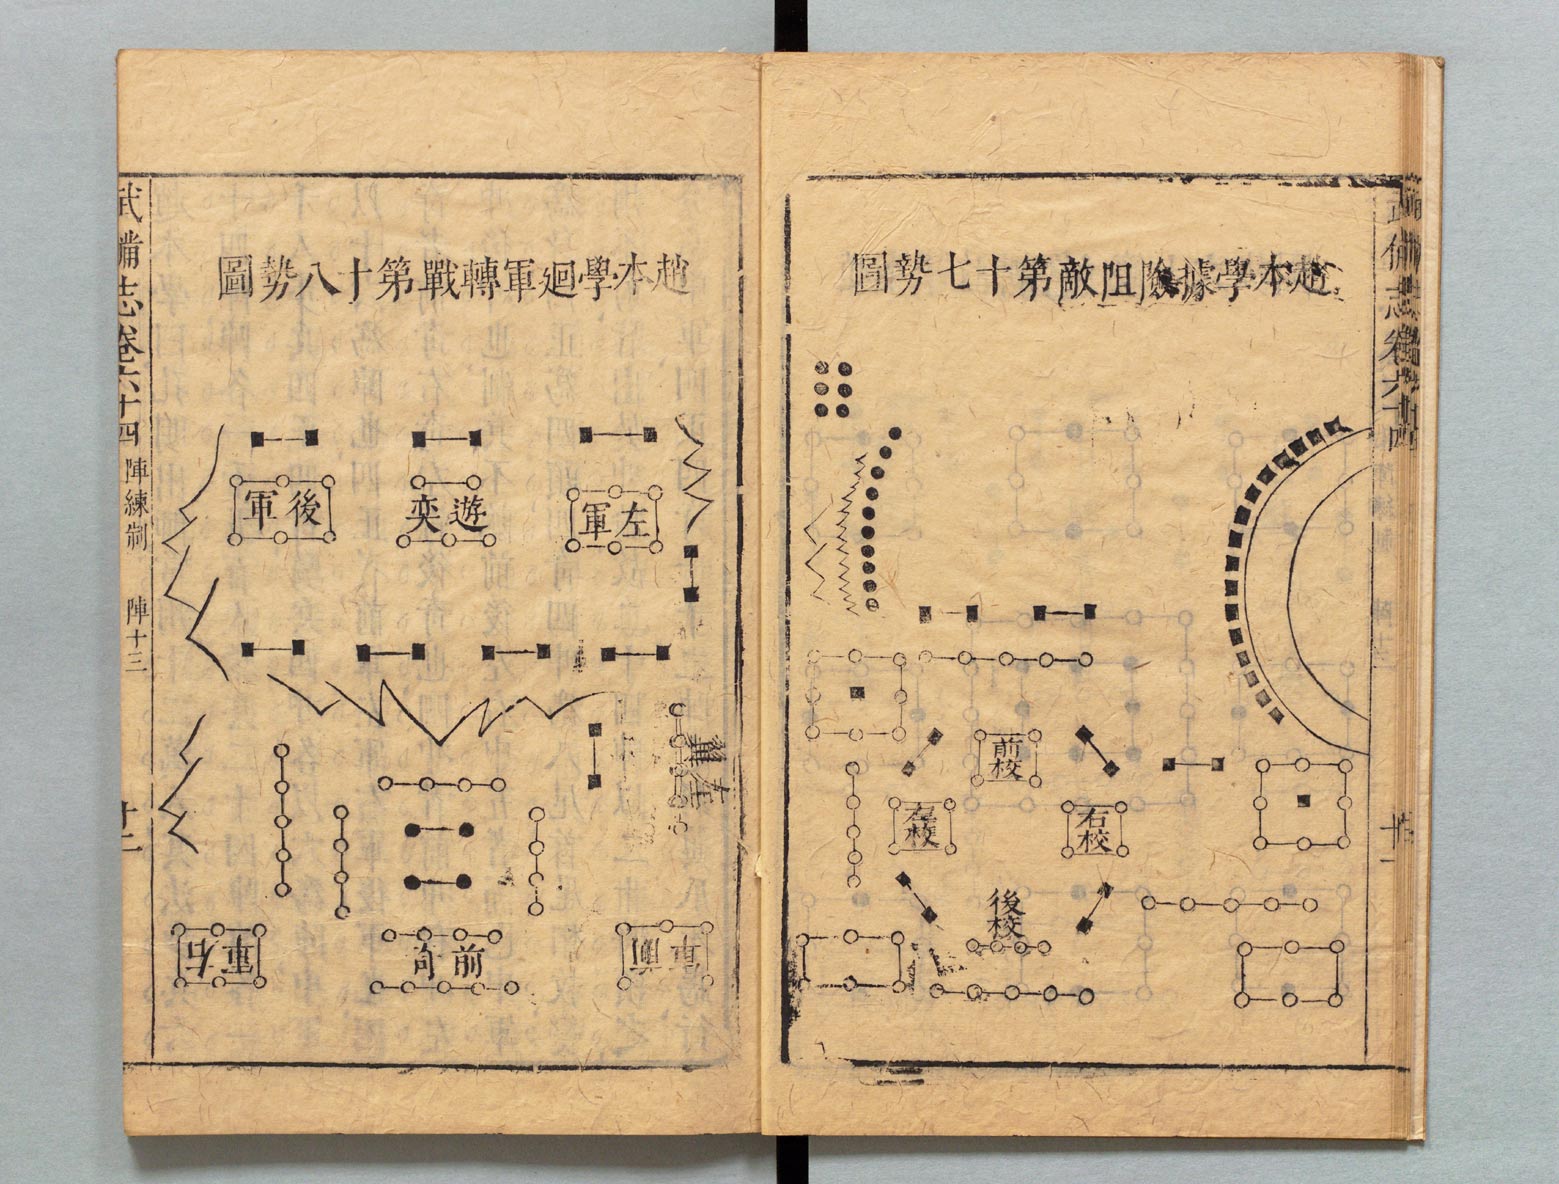 趙本學據險阻敵第十七勢圖
前校
左校
右校
後校
武備志卷六十四
趙本學廻軍轉戰第十八勢圖
左軍
遊奕
後軍
前軍
前奇
右軍
武備志卷六十四
陣練制
陣十三
十二